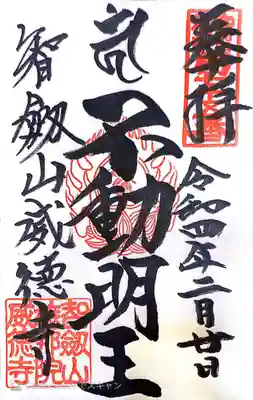 奉拝
令和四年二月廿日
不動明王
智剱山威徳寺
智劔山
院
威徳寺